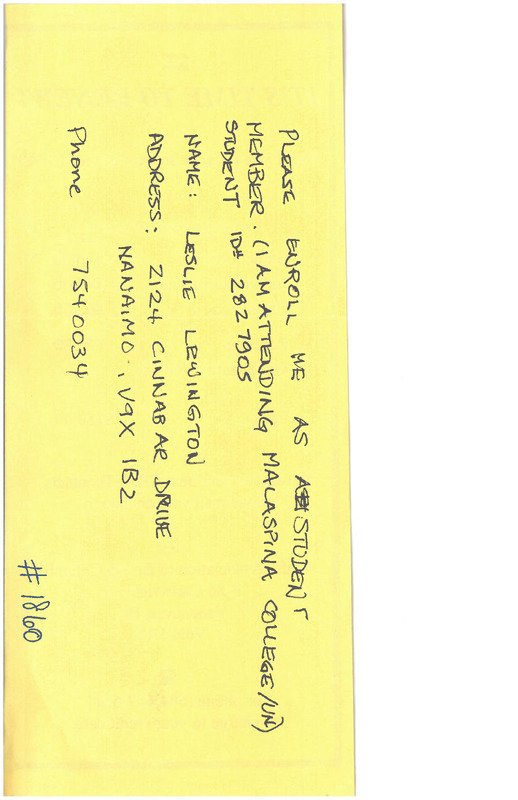 PLEASE ENROLL ME AS A STUDENT
MEMBER. (I AM ATTENDING MALASPINA COLLEGE/UN)
STUDENT ID# 2827905
NAME: LESLIE LEWINGTON
ADDRESS: 2124 CINNABAR DRIVE
NANAIMO, V9X 1B2
Phone 7540034
#1860